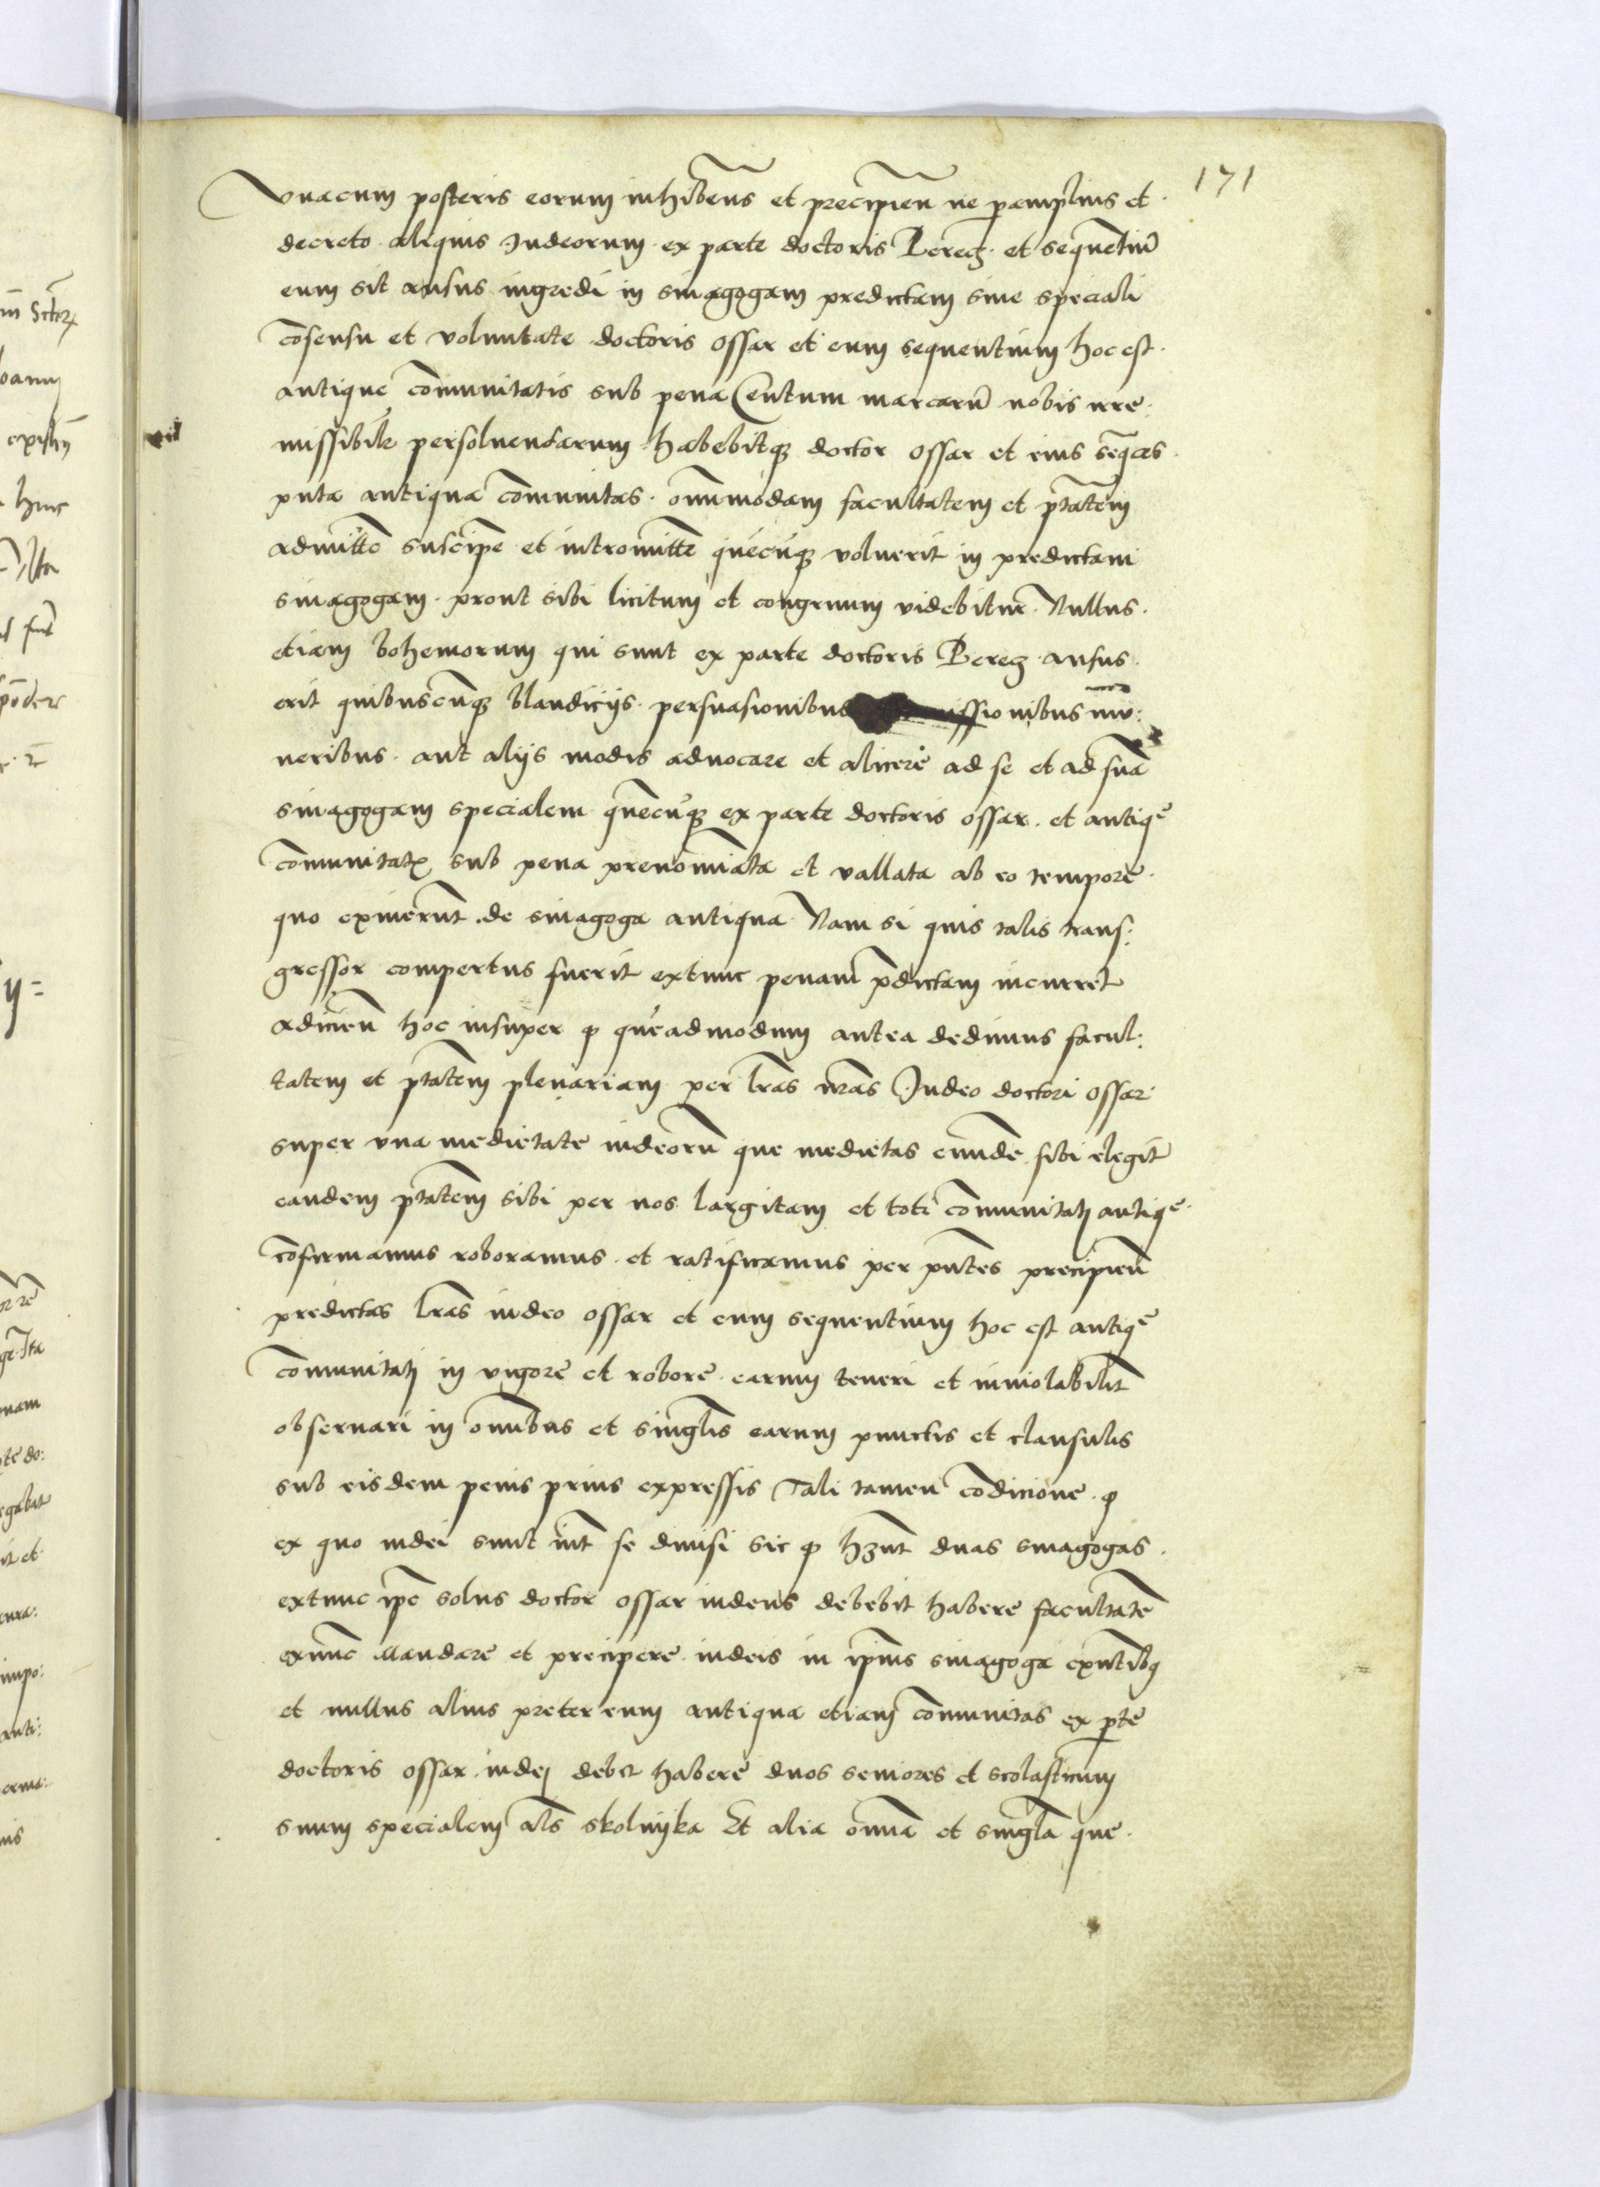 171
vnacum posteris eorum inhibens et precipien ne pamplius et
decreto aliquis Iudeorum ex parte doctoris Perecz et sequentiu
eum sit ausus ingredi in sinagogam predictam sine speciali
cosensu et voluntate doctoris Ossar et eum sequentium hoc est
antique comunitatis sub pena Centum marcaru nobis irre:
missibile persoluendarum habebitque doctor Ossar et eius seqces
puta antiqua comunitas omnimodam facultatem et ptatem
admitte suscipe et intromitte quecuque voluerit in predictam
sinagogam prout sibi licitum et congruum videbitur Nullus
etiam bohemorum qui sunt ex parte doctoris Perecz ausus
erit quibuscuque blandicijs persuasionibus missionibus mu:
neribus aut alijs modis aduocare et alicere ad se et ad sua
sinagogam specialem quecuque ex parte doctoris Ossar et antiqe
comunitatis sub pena prenominata et vallata ab eo tempore
quo exiuerunt de sinagoga antiqua Nam si quis talis trans:
gressor compertus fuerit extunc penam pdictam incurret
adicien hoc insuper q queadmodum antea dedimus facul:
tatem et ptatem plenariam per lras nras Iudeo doctori Ossar
super vna medietate iudeoru que medietas eunde sibi elegit
eandem ptatem sibi per nos largitam et toti comunitatj antiqe
cofirmamus roboramus et ratificamus per pntes precipien
predictas lras iudeo Ossar et eum sequentium hoc est antiqe
comunitatj in vigore et robore earum teneri et inuiolabilit
obseruari in omibus et singlis earum punctis et clausulis
sub eisdem penis prius expressis Tali tamen codicione q
ex quo iudei sunt int se diuisi sic q hnt duas sinagogas
extunc ipe solus doctor Ossar iudeus debebit habere facultate
exnunc mandare et precipere iudeis in ipius sinagoga exntibq
et nullus alius preter eum antiqua etiam comunitas ex pte
doctoris Ossar iudej debet habere duos seniores et scolasticum
suum specialem als skolnijka Et alia omia et singla que